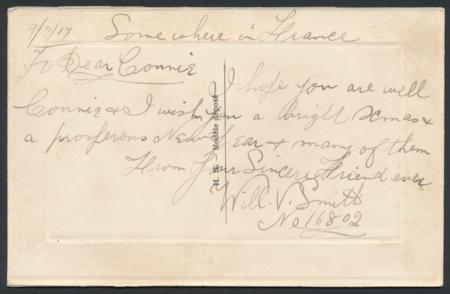 9/11/17 Somewhere in France
To Dear Connie
I hope you are well
Connie & I wish you a bright Xmas &
a prosperous New Year & many of them
From Your Sincere Friend ever
Will. V. Smith
No 16802